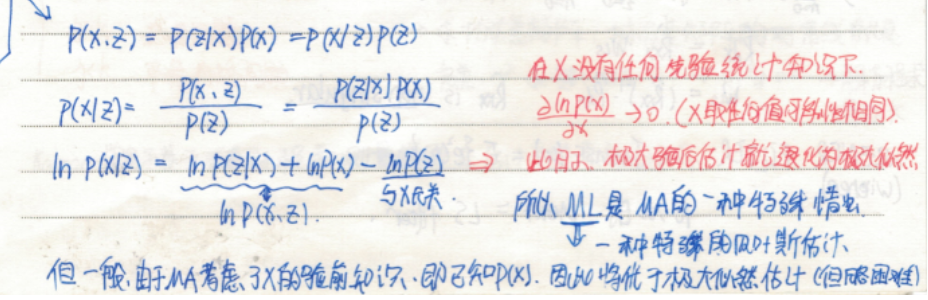 P(X,Z) = P(Z|X)P(X) = P(X|Z)P(Z)
P(X|Z) = P(X,Z) / P(Z) = P(Z|X)P(X) / P(Z)
在X没有任何先验统计知识下.
∂lnP(X)/∂X → 0. (X取任何值可能性相同).
ln P(X|Z) = ln P(Z|X) + lnP(X) - lnP(Z) ⇒ 此时、极大验后估计就退化为极大似然
与X无关.
ln P(X,Z).
所以 ML 是 MA的一种特殊情况.
⇓ 一种特殊的贝叶斯估计.
但一般,由于MA考虑了X的验前知识、即已知P(X). 因此将优于极大似然估计 (但困难)